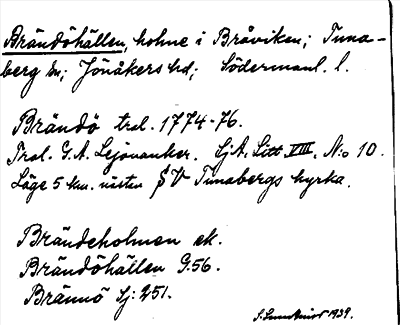 Brändöhällen, holme i Bråviken; Tuna-
berg sn; Jönåkers hd; Södermanl. l.
Brändö tral. 1774-76.
Tral. G.A. Lejonanker. LjA. Litt. VIII. N:o 10.
Läge 5 km. nästan SV Tunabergs kyrka.
Brändeholmen ek.
Brändöhällen G.56.
Brännö Lj: 251.
1939.